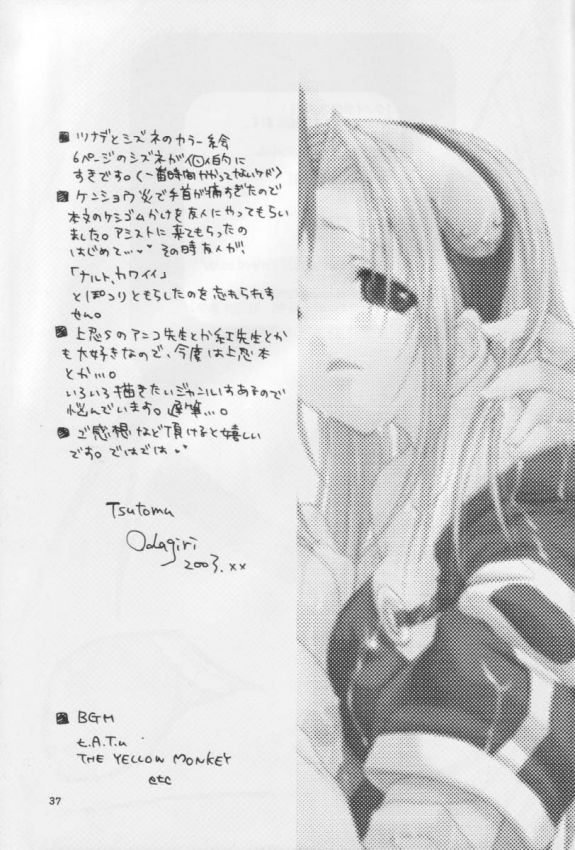 ツナデとシズネのカラー絵
6ページのシズネが個人的に
すきです。(一番時間かかってないケド)
ケンショウ炎で手首が痛すぎたので
本文のケシゴムかけを友人にやってもらい
ました。アシストに来てもらったの
はじめて…。その時友人が、
「ナルト、カワイイ」
とぽつりともらしたのを忘れられま
せん。
上忍Sのアンコ先生とか紅先生とか
も大好きなので、今度は上忍本
とか…。
いろいろ描きたいジャンルはあるので
悩んでいます。遅筆…。
ご感想など頂けると嬉しい
です。ではでは
Tsutomu
Odagiri
2003.xx
BGM
t.A.T.u
THE YELLOW MONKEY
etc
37